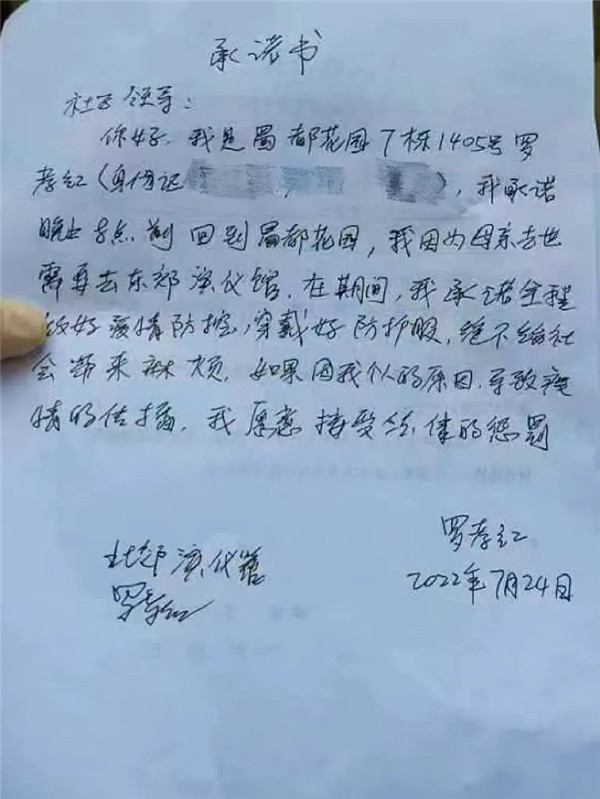 承诺书
社区领导：
你好，我是蜀都花园7栋1405号罗
孝红（身份证），我承诺
晚上8点前回到蜀都花园，我因为母亲去世
需要去东郊殡仪馆。在期间，我承诺全程
做好疫情防控，穿戴好防护服，绝不给社
会带来麻烦。如果因我个人的原因，导致疫
情的传播，我愿意接受法律的惩罚
罗孝红
2022年7月24日
北郊殡仪馆
罗孝红